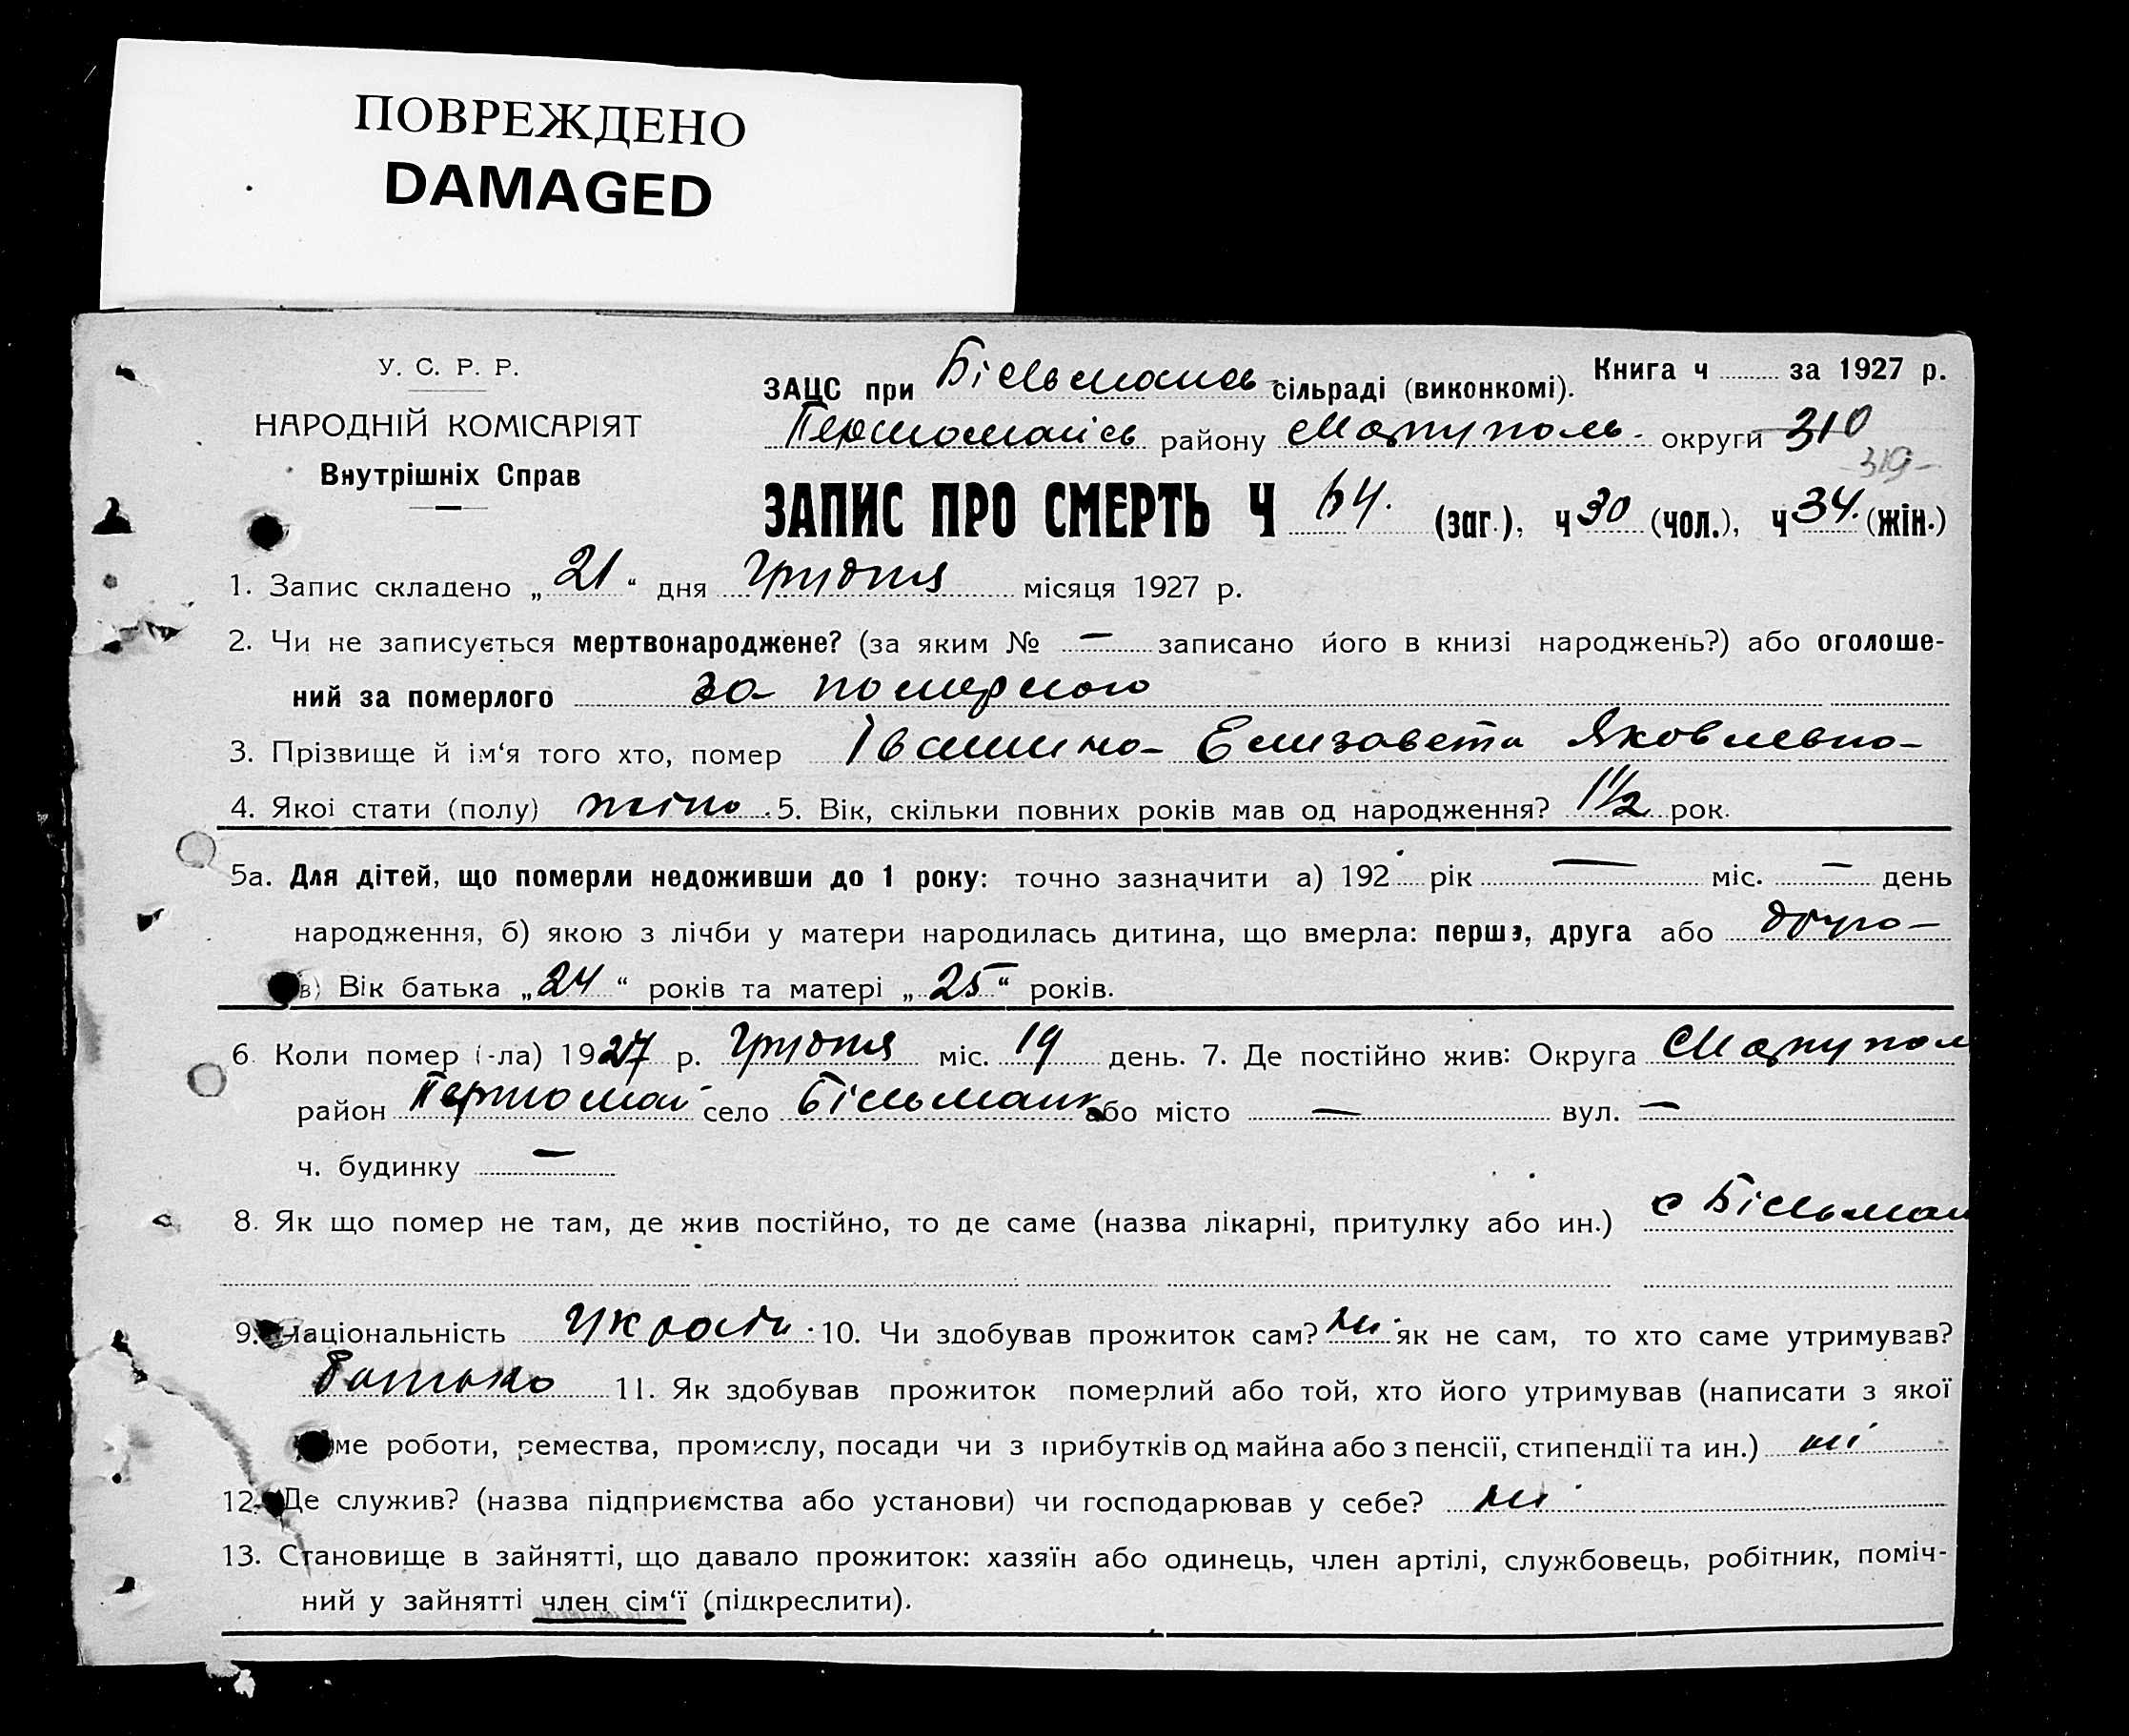 ПОВРЕЖДЕНО
DAMAGED
У. С. Р. Р.
НАРОДНІЙ КОМІСАРІЯТ
Внутрішніх Справ
ЗАЦС при Більмансь- сільраді (виконкомі). Книга ч за 1927 р.
Першомайсь району Маріуполь- округи 310
319
ЗАПИС ПРО СМЕРТЬ Ч 64. (заг.), ч 30 (чол.), ч 34. (жін.)
1. Запис складено „ 21 “ дня Грудня місяця 1927 р.
2. Чи не записується мертвонароджене? (за яким № — записано його в книзі народжень?) або оголоше-
ний за померлого за померлого
3. Прізвище й ім‘я того хто, помер Івашина Елизавета Яковлевна
4. Якої стати (полу) жіно. 5. Вік, скільки повних років мав од народження? 1 1/2 рок.
5а. Для дітей, що померли недоживши до 1 року: точно зазначити а) 192 рік — міс. — день
народження, б) якою з лічби у матери народилась дитина, що вмерла: перша, друга або друга
в) Вік батька „ 24 “ років та матері „ 25 “ років.
6. Коли помер (-ла) 1927 р. Грудня міс. 19 день. 7. Де постійно жив: Округа Маріупол
район Першомай село Більманк або місто — вул. —
ч. будинку —
8. Як що помер не там, де жив постійно, то де саме (назва лікарні, притулку або ин.) с Більман
9. Національність Україн. 10. Чи здобував прожиток сам? ні. як не сам, то хто саме утримував?
батько 11. Як здобував прожиток померлий або той, хто його утримував (написати з якої
ме роботи, ремества, промислу, посади чи з прибутків од майна або з пенсії, стипендії та ин.) ні
12. Де служив? (назва підприємства або установи) чи господарював у себе? ні
13. Становище в зайнятті, що давало прожиток: хазяїн або одинець, член артілі, службовець, робітник, поміч-
ний у зайнятті член сім‘ї (підкреслити).